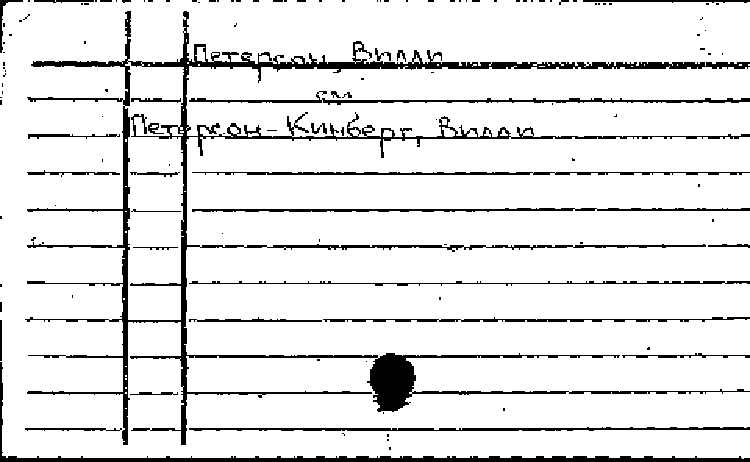 Петерсон, Вилли
см
Петерсон-Кинберг, Вилли